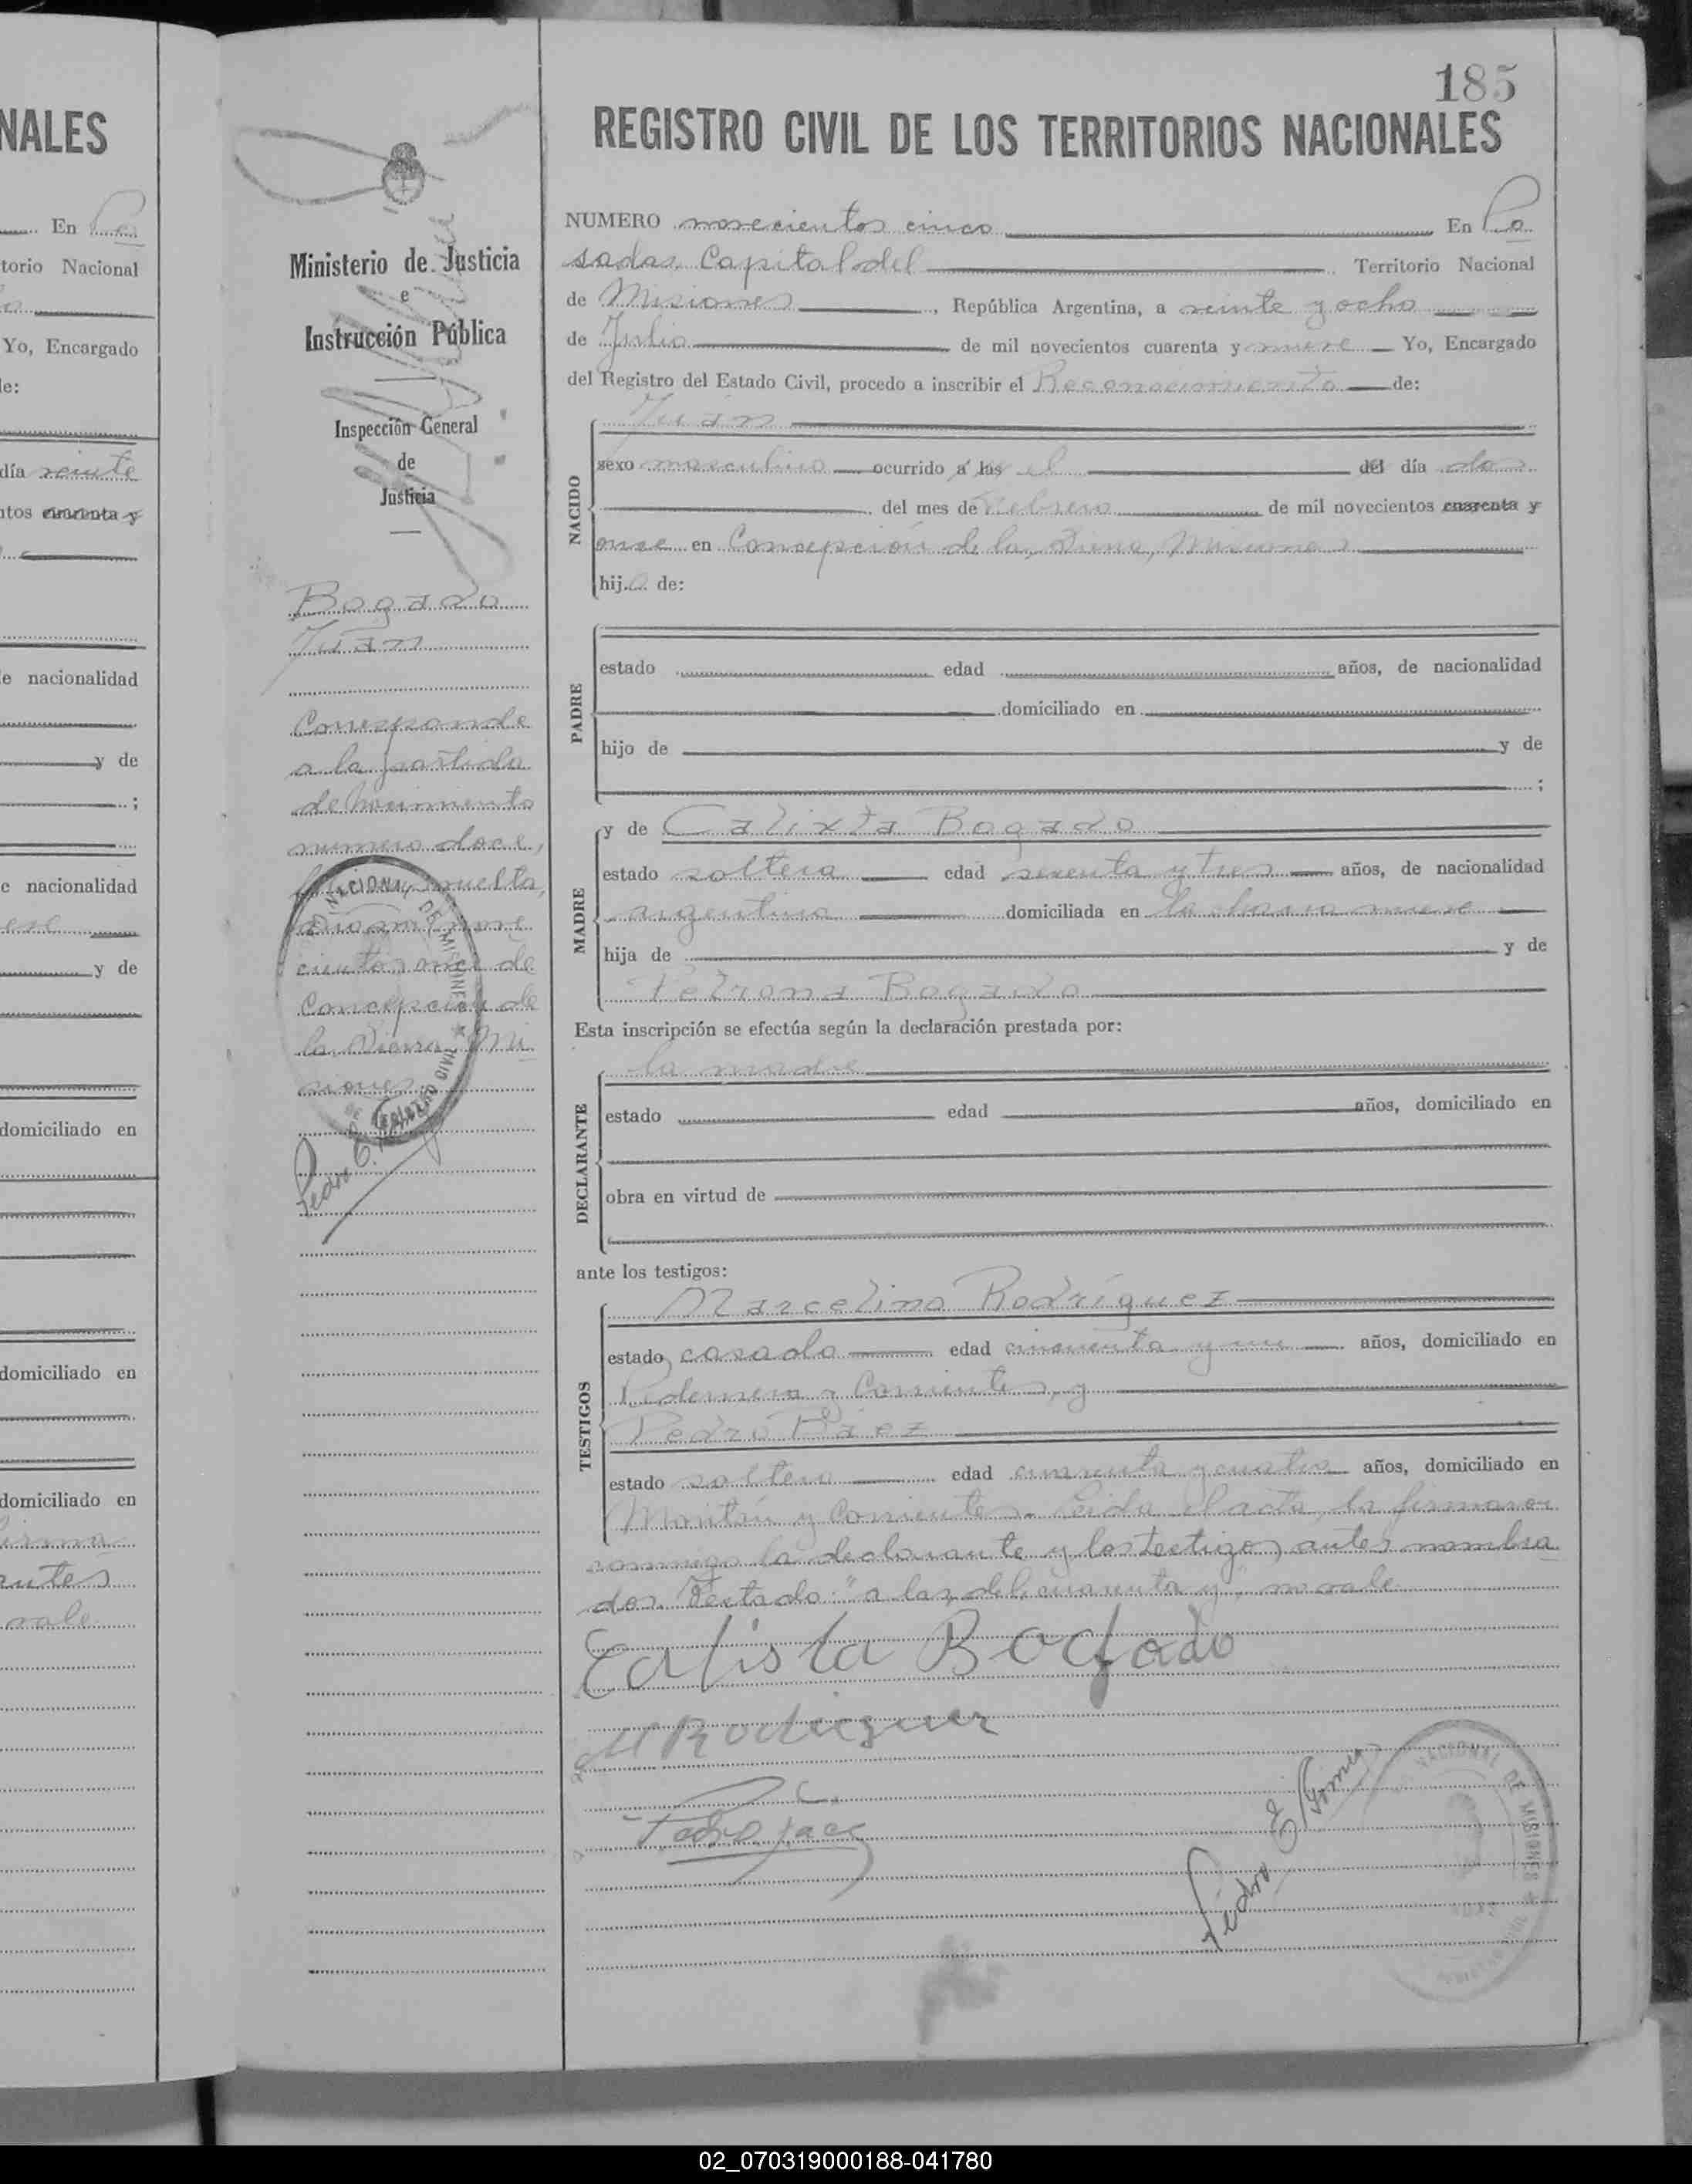 185
REGISTRO CIVIL DE LOS TERRITORIOS NACIONALES
NUMERO novecientos cinco En Po
sadas Capital del Territorio Nacional
de Misiones, República Argentina, a veinte y ocho
de Julio de mil novecientos cuarenta y nueve Yo, Encargado
del Registro del Estado Civil, procedo a inscribir el Reconocimiento de:
NACIDO
Juan
sexo masculino ocurrido a las el del día dos
del mes de Febrero de mil novecientos cuarenta y
once en Concepción de la Sierra, Misiones
hijo de:
PADRE
estado edad años, de nacionalidad
domiciliado en
hijo de y de
;
MADRE
y de Calixta Bogado
estado soltera edad sesenta y tres años, de nacionalidad
argentina domiciliada en la chacra nueve
hija de y de
Petrona Bogado
Esta inscripción se efectúa según la declaración prestada por:
DECLARANTE
la madre
estado edad años, domiciliado en
obra en virtud de
ante los testigos:
TESTIGOS
Marcelino Rodríguez
estado casado edad cincuenta y un años, domiciliado en
Pedernera y Corrientes, y
Pedro Páez
estado soltero edad cuarenta y cuatro años, domiciliado en
y Corrientes. Leida el acta, la firmaron
conmigo la declarante y los testigos antes nombra
dos. Testado: "a las, del, cuarenta y", no vale
Calista Bogado
M Rodriguez
Pedro Paez
Pedro E. Gimenez
NACIONAL DE MISIONES
Ministerio de Justicia
e
Instrucción Pública
Inspección General
de
Justicia
Bogado
Juan
Corresponde
a la partida
de Nacimiento
numero doce,
vuelta,
nove
cientos once de
Concepción de
la Sierra Mi
siones
NACIONAL DE MISIONES
CIVIL
Pedro E.
NALES
En Po
torio Nacional
Yo, Encargado
de:
día veinte
ntos cuarenta y
e nacionalidad
y de
;
e nacionalidad
y de
domiciliado en
domiciliado en
domiciliado en
vale
02_070319000188-041780